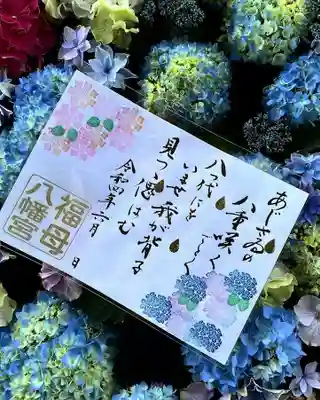 あじさゐの
八重咲く
ごとく
八つ代にを
いませ我が背子
見つつ偲はむ
令和四年六月 日
福母
八幡宮